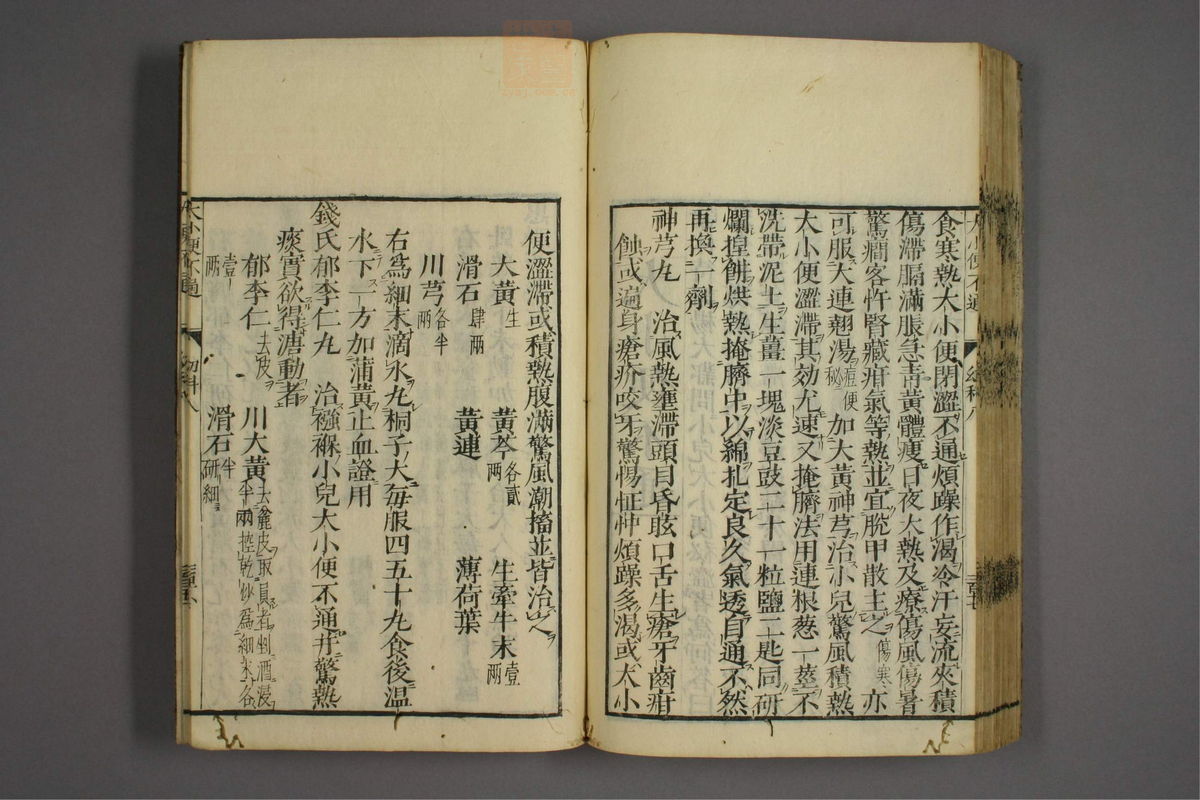 食寒熱大小便閉澀不通煩躁作渴冷汗妄流夾積
傷滯膈滿脹急青黃體瘦日夜大熱及療傷風傷暑
驚癇客忤腎藏疳氣等熱並宜脫甲散主之傷寒亦
可服大連翹湯痘便秘加大黃神芎治小兒驚風積熱
大小便澀滯其効尤速又掩臍法用連根葱一莖不
洗帶泥土生薑一塊淡豆豉二十一粒鹽二匙同研
爛揑餅烘熱掩臍中以綿扎定良久氣透自通不然
再換一劑
神芎丸 治風熱壅滯頭目昏眩口舌生瘡牙齒疳
蝕或遍身瘡疥咬牙驚惕怔忡煩躁多渴或大小
便澀滯或積熱腹滿驚風潮搐並皆治之
大黃生 黃芩各貳兩 生牽牛末壹兩
滑石肆兩 黃連 薄荷葉
川芎各半兩
右為細末滴水丸桐子大每服四五十丸食後溫
水下一方加蒲黃止血證用
錢氏郁李仁丸 治襁褓小兒大小便不通并驚熱
痰實欲得溏動者
郁李仁去皮 川大黃去麄皮取實者剉酒浸半兩控乾炒為細末各
壹兩 滑石半兩研細
大小便不通
幼科八